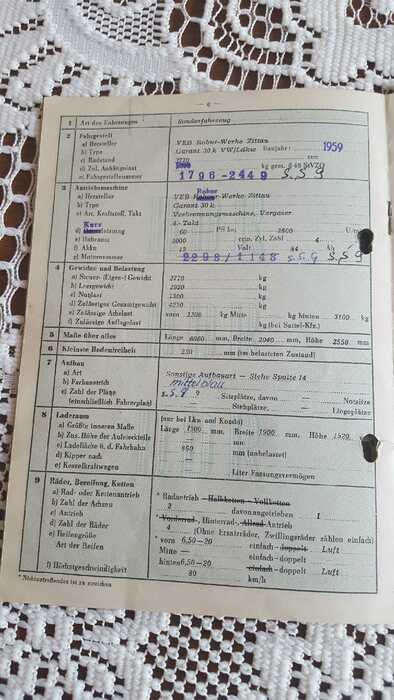 — 6 —
1 Art des Fahrzeuges Sonderfahrzeug
2 Fahrgestell
a) Hersteller VEB Robur-Werke Zittau
b) Type Garant 30 k Baujahr: 1959
c) Radstand mm
d) Zul. Anhängelast kg gem. § 48 StVZO
e) Fahrgestellnummer 1796-2449 S.S9
3 Antriebsmaschine Robur
a) Hersteller VEB Robur-Werke Zittau
b) Type Garant 30 k
c) Art, Kraftstoff, Takt Verbrennungsmaschine, Vergaser
4-Takt
Kurz
d) leistung 60 PS bei 2800 U/min
e) Hubraum 3000 ccm, Zyl. Zahl 4
f) Akku 12 Volt 84 Ah
g) Motornummer 2298/1148 S.S9 S.S9
4 Gewichte und Belastung
a) Steuer- (Eigen-) Gewicht 2770 kg
b) Leergewicht 2920 kg
c) Nutzlast kg
d) Zulässiges Gesamtgewicht 4220 kg
e) Zulässige Achslast vorn kg Mitte — kg hinten 3100 kg
f) Zulässige Auflagelast — kg (bei Sattel-Kfz.)
5 Maße über alles Länge mm, Breite 2040 mm, Höhe 2550 mm
6 Kleinste Bodenfreiheit mm (im belasteten Zustand)
7 Aufbau
a) Art Sonstige Aufbauart — Siehe Spalte 14
b) Farbanstrich mittelblau
c) Zahl der Plätze S.S9 Sitzplätze, davon — Notsitze
(einschließlich Fahrerplatz) Stehplätze, — Liegeplätze
8 Laderaum (nur bei Lkw und Kombi)
a) Größte inneren Maße Länge mm, Breite 1900 mm, Höhe 1520 mm
b) Zus. Höhe der Aufsteckteile — mm
c) Ladefläche ü. d. Fahrbahn 850 mm (unbelastet)
d) Kipper nach —
e) Kesselkraftwagen — Liter Fassungsvermögen
9 Räder, Bereifung, Ketten
a) Rad- oder Kettenantrieb * Radantrieb — Halbketten — Vollketten
b) Zahl der Achsen 2 davon angetrieben 1
c) Antrieb * Vorderrad-, Hinterrad-, Allrad-Antrieb
d) Zahl der Räder 4 (Ohne Ersatzräder, Zwillingsräder zählen einfach)
e) Reifengröße * vorn 6,50-20 einfach — doppelt Luft
Art der Reifen Mitte — einfach — doppelt
hinten 6,50-20 einfach — doppelt Luft
f) Höchstgeschwindigkeit 80 km/h
* Nichtzutreffendes ist zu streichen